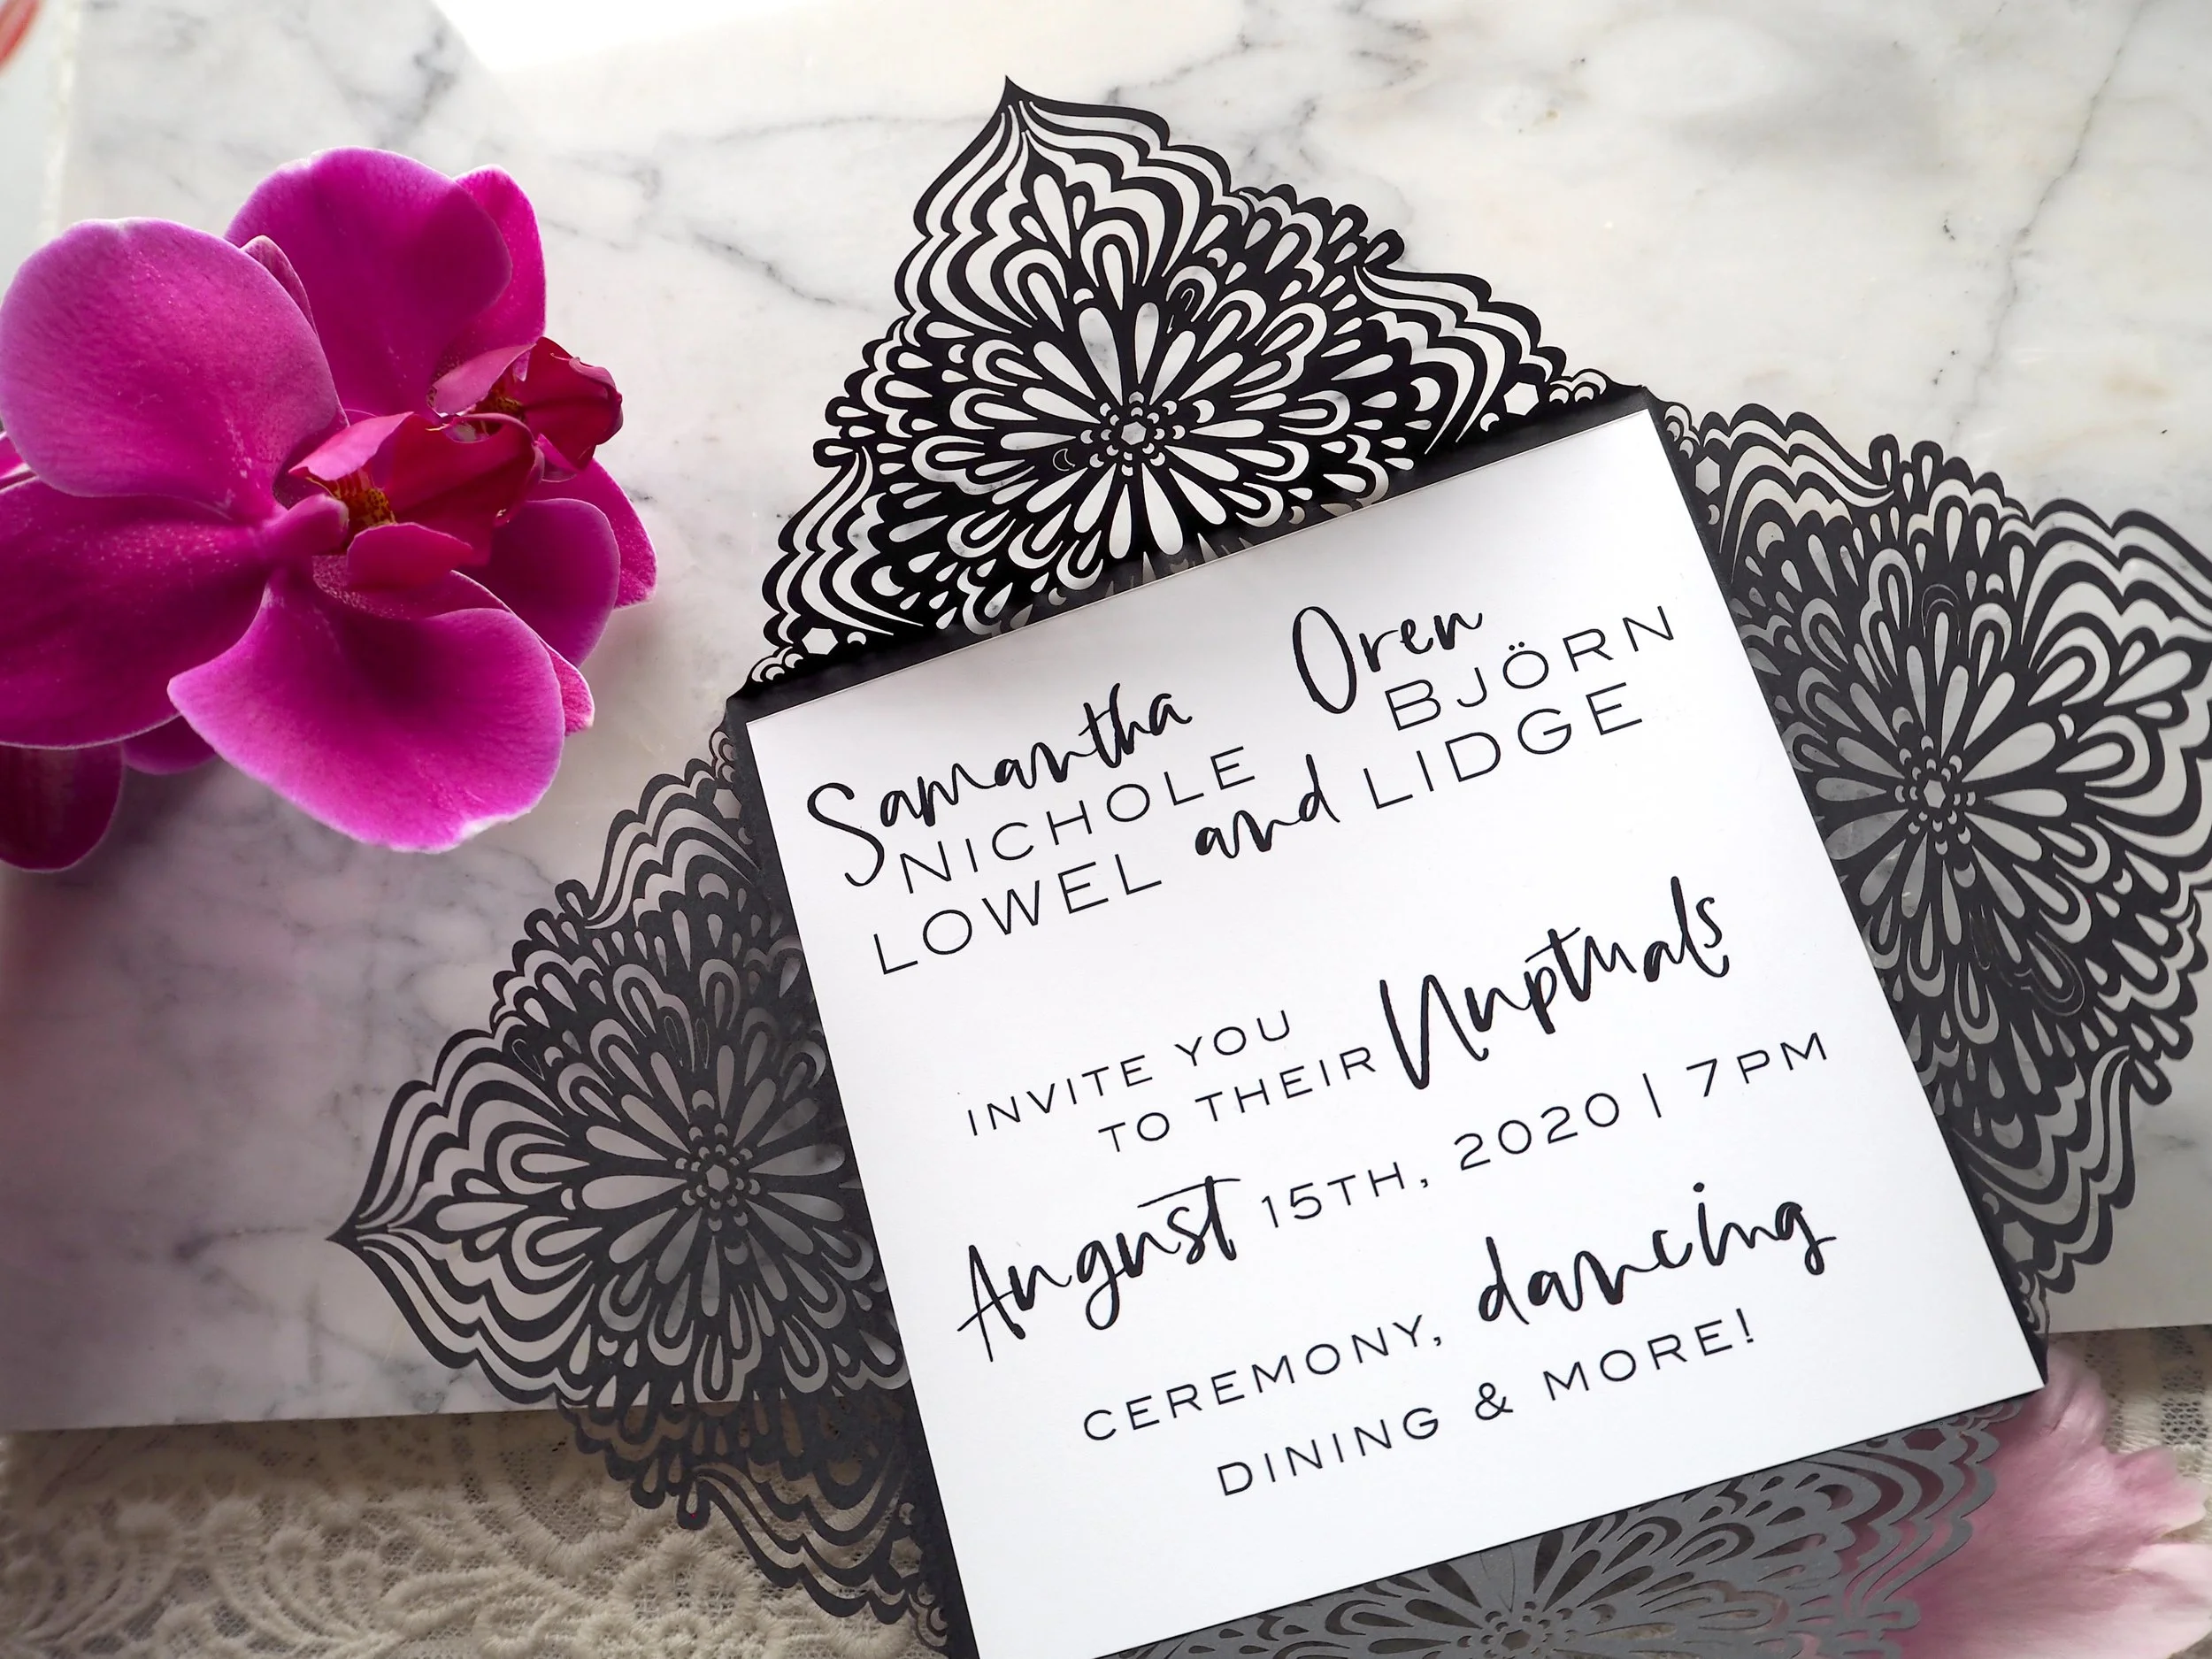 Samantha Oren
NICHOLE BJÖRN
LOWEL and LIDGE
INVITE YOU
TO THEIR Nuptuals
August 15TH, 2020 | 7PM
CEREMONY, dancing
DINING & MORE!